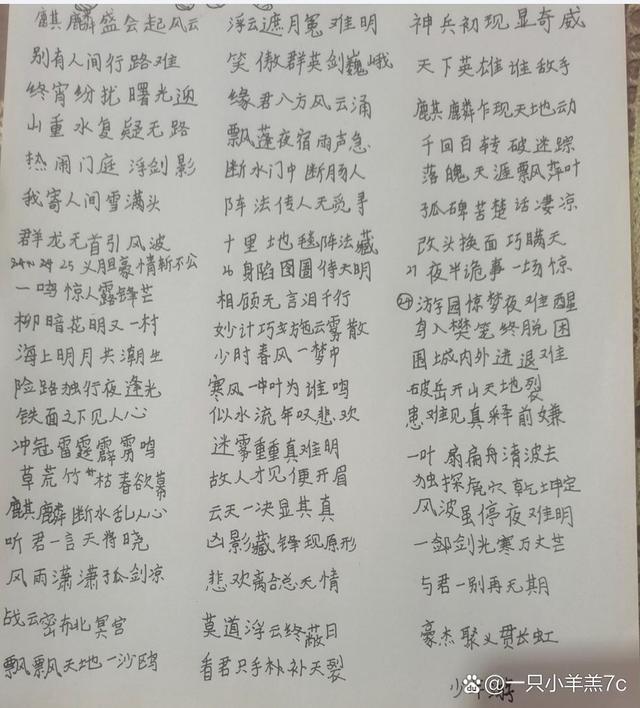 麒麟盛会起风云 浮云遮月冤难明 神兵初现显奇威
别有人间行路难 笑傲群英剑巍峨 天下英雄谁敌手
终宵纷扰曙光迎 缘君八方风云涌 麒麟乍现天地动
山重水复疑无路 飘蓬夜宿雨声急 千回百转破迷踪
热闹门庭浮剑影 断水门中断肠人 落魄天涯飘萍叶
我寄人间雪满头 阵法传人无觅寻 孤碑苦楚话凄凉
群龙无首引风波 十里地毯阵法藏 改头换面巧瞒天
25 义胆豪情斩不公 26 身陷囹圄待天明 21 夜半诡事一场惊
一鸣惊人露锋芒 相顾无言泪千行 24 游园惊梦夜难醒
柳暗花明又一村 妙计巧施云雾散 身入樊笼终脱困
海上明月共潮生 少时春风一梦中 围城内外进退难
险路独行夜逢光 寒风一叶为谁鸣 破岳开山天地裂
铁面之下见人心 似水流年叹悲欢 患难见真释前嫌
冲冠雷霆霹雳鸣 迷雾重重真难明 一叶扁舟清波去
草荒竹枯春欲暮 故人才见便开眉 独探虎穴乾坤定
麒麟断水乱人心 云天一决显其真 风波虽停夜难明
听君一言天将晓 凶影藏锋现原形 一剑光寒万丈芒
风雨潇潇孤剑凉 悲欢离合总无情 与君一别再无期
战云密布北冥宫 莫道浮云终蔽日 豪杰聚义贯长虹
飘飘天地一沙鸥 看君只手补天裂 少年游
@一只小羊羔7c